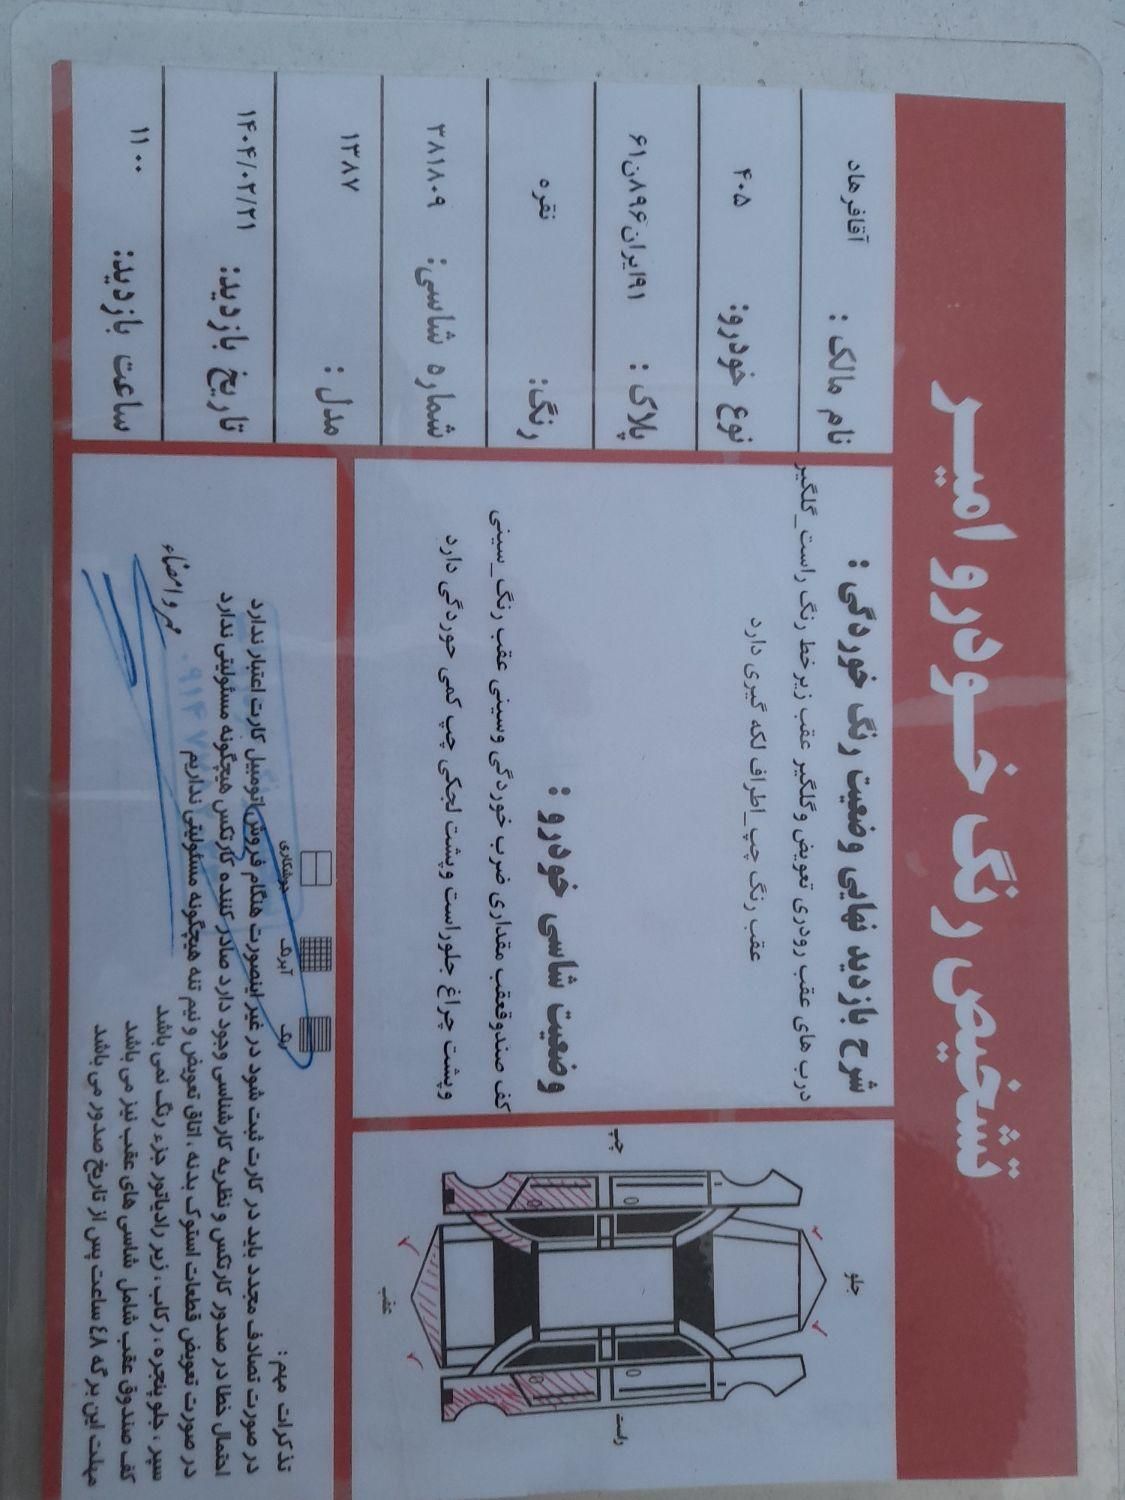 تشخیص رنگ خودرو امیر
نام مالک : آقافرهاد
نوع خودرو: ۴۰۵
پلاک : ۹۱ایران۸۹۶ن۶۱
رنگ: نقره
شماره شاسی: ۳۸۱۸۰۹
مدل : ۱۳۸۷
تاریخ بازدید: ۱۴۰۴/۰۲/۲۱
ساعت بازدید: ۱۱۰۰
شرح بازدید نهایی وضعیت رنگ خوردگی :
درب های عقب رودری تعویض و گلگیر عقب زیرخط رنگ راست_گلگیر
عقب رنگ چپ_اطراف لکه گیری دارد
وضعیت شاسی خودرو :
کف صندوقعقب مقداری ضرب خوردگی وسینی عقب رنگ_سینی
وپشت چراغ جلوراست وپشت لجکی چپ کمی خوردگی دارد
چپ
جلو
عقب
راست
رنگ
آبرنگ
جوشکاری
تذکرات مهم :
در صورت تصادف مجدد باید در کارت ثبت شود در غیر اینصورت هنگام فروش اتومبیل کارت اعتبار ندارد
احتمال خطا در صدور کارتکس و نظریه کارشناسی وجود دارد صادر کننده کارتکس هیچگونه مسئولیتی ندارد
در صورت تعویض قطعات استوک بدنه ، اتاق تعویض و نیم تنه هیچگونه مسئولیتی نداریم
سپر ، جلو پنجره ، رکاب ، زیر رادیاتور جزء رنگ نمی باشد
کف صندوق عقب شامل شاسی های عقب نیز می باشد
مهلت این برگه ۴۸ ساعت پس از تاریخ صدور می باشد
مهر و امضاء